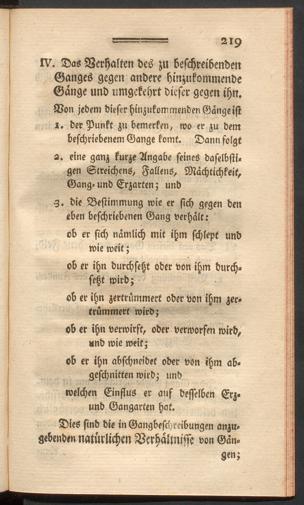 219
IV. Das Verhalten des zu beschreibenden
Ganges gegen andere hinzukommende
Gänge und umgekehrt dieser gegen ihn.
Von jedem dieser hinzukommenden Gänge ist
1. der Punkt zu bemerken, wo er zu dem
beschriebenem Gange komt. Dann folgt
2. eine ganz kurze Angabe seines daselbsti-
gen Streichens, Fallens, Mächtichkeit,
Gang- und Erzarten; und
3. die Bestimmung wie er sich gegen den
eben beschriebenen Gang verhält:
ob er sich nämlich mit ihm schlept und
wie weit;
ob er ihn durchsetzt oder von ihm durch-
setzt wird;
ob er ihn zertrümmert oder von ihm zer-
trümmert wird;
ob er ihn verwirft, oder verworfen wird,
und wie weit;
ob er ihn abschneidet oder von ihm ab-
geschnitten wird; und
welchen Einflus er auf desselben Erz-
und Gangarten hat.
Dies sind die in Gangbeschreibungen anzu-
gebenden natürlichen Verhältnisse von Gän-
gen;